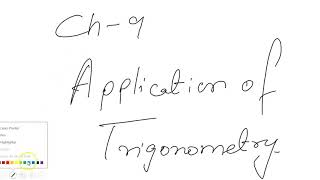 Ch-9
Application of
Trigonometry